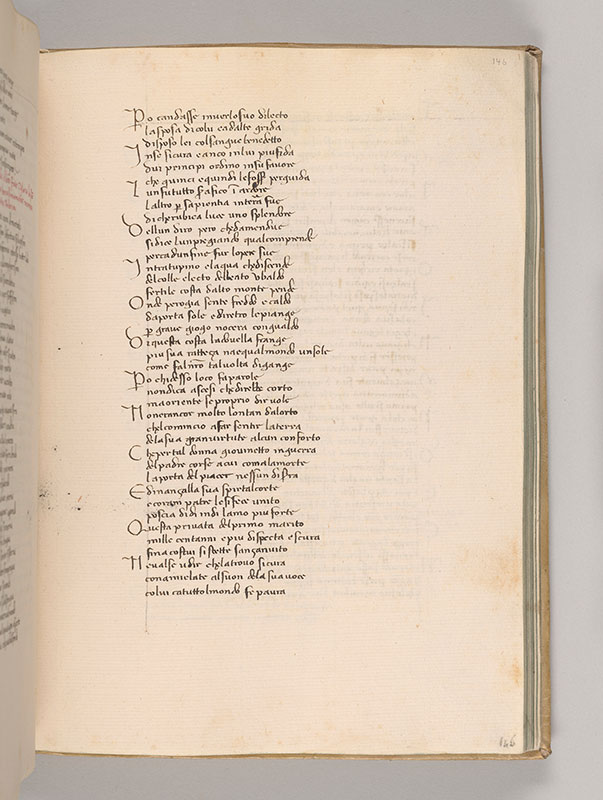 146
Po candasse inverlosuo dilecto
lasposa dicolui cadalte grida
disposo lei colsangue benedetto
Inse sicura e anco inlui piufida
dui principi ordino insufavore
che quinci equindi lefosser perguida
Lun fututto srafico ī ardore
laltro p sapientia interra fue
di cherubica luce uno splendore
Dellun diro pero chedamendue
sidice lunpregiando qualcomprende
percadunfine fur lopere sue
Intratupino elaqua chediscende
delcolle electo delbeato ubaldo
fertile costa dalto monte pende
Onde perogia sente freddo ecaldo
daporta sole ediretro lepiange
p grave giogo nocera congualdo
Diquesta costa ladovella frange
piu sua ratteça nacqualmondo unsole
come falnr̄o talvolta digange
Po chidesso loco faparole
nondica ascesi chedirebbe corto
maoriente seproprio dir vole
Nonerancor molto lontan dalorto
chelcomincio afar sentir laterra
dela sua granvirtute alcun conforto
Chepertal donna giovinetto inguerra
delpadre corse acui comalamorte
laporta delpiacer nessun disfra
Edinançalla sua spiretalcorte
ecoram patre lesifece unito
poscia didi indi lamo piuforte
Questa privata delprimo marito
mille centanni epiu dispecta escura
fina costui si stette sançanvito
Nevalse udir chelatrovo sicura
conamiclate alsuon dela suavoce
colui catuttolmondo fe paura
146